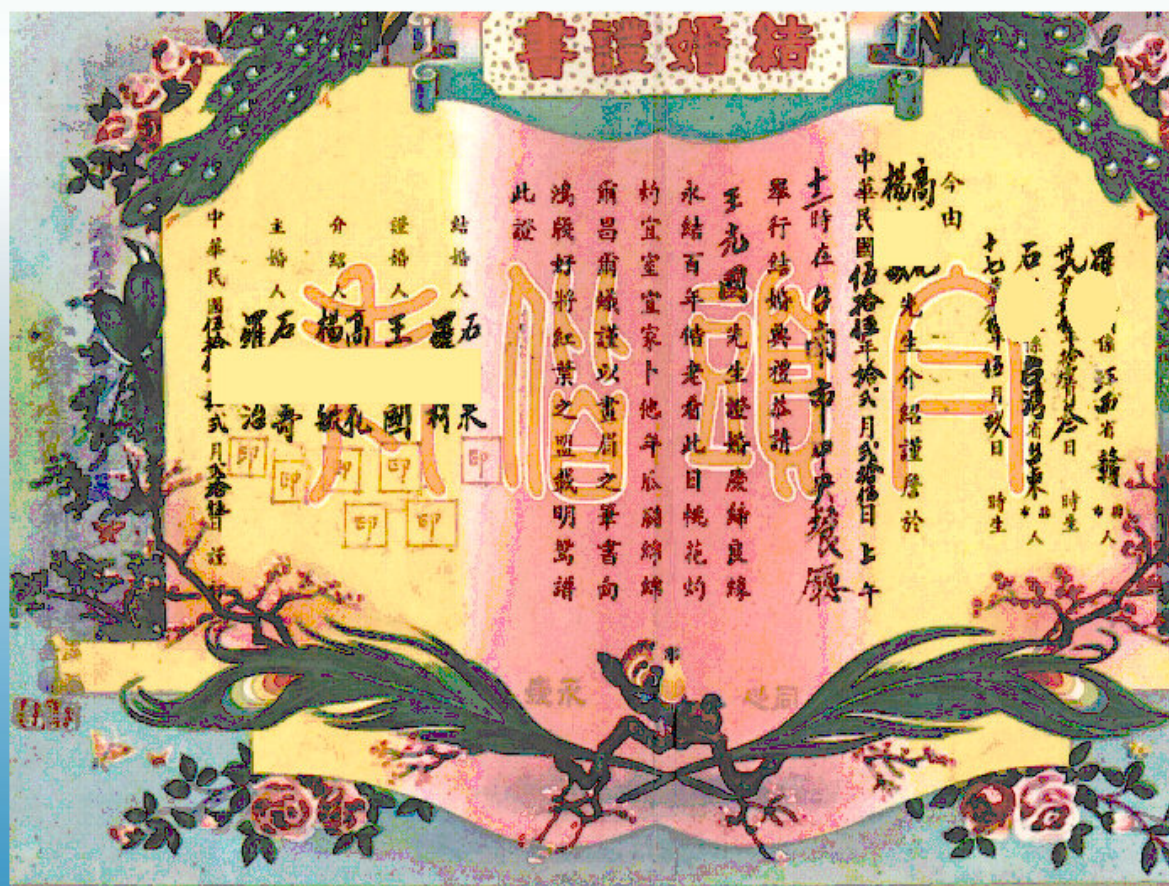 結婚證書
羅 係江西省贛 縣市人
年拾月 日 時生
石 係台灣省台東 縣市人
十七 年伍月玖日 時生
今由
高
楊 先生介紹謹詹於
中華民國伍拾伍年拾弍月弍拾伍日上午
十二時在台南市中央餐廳
舉行結婚典禮恭請
王光國先生證婚慶締良緣
永結百年偕老看此日桃花灼
灼宜室宜家卜他年瓜瓞綿綿
爾昌爾熾謹以畫眉之筆書向
鴻牋好將紅葉之盟載明鴛譜
此證
結婚人 石 羅
證婚人 王 國
介紹人 高 楊 敏
主婚人 石 壽 羅 治
中華民國伍拾 年拾弍月弍拾伍日 謹
白頭偕老
印
印
印
印
印
印
印
同心
永幾